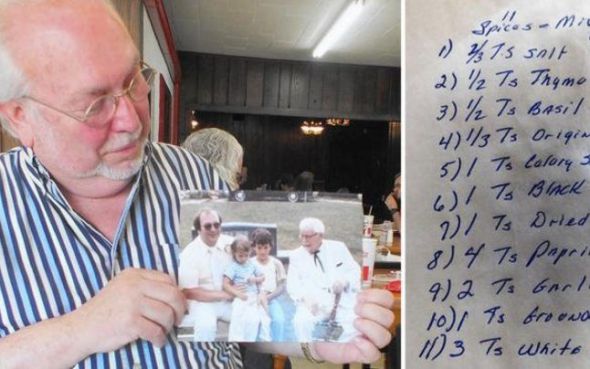 11
Spices - Mi
1) 2/3 Ts Salt
2) 1/2 Ts Thyme
3) 1/2 Ts Basil
4) 1/3 Ts Origin
5) 1 Ts Celory S
6) 1 Ts Black
7) 1 Ts Dried
8) 4 Ts Papri
9) 2 Ts Garl
10) 1 Ts Ground
11) 3 Ts White